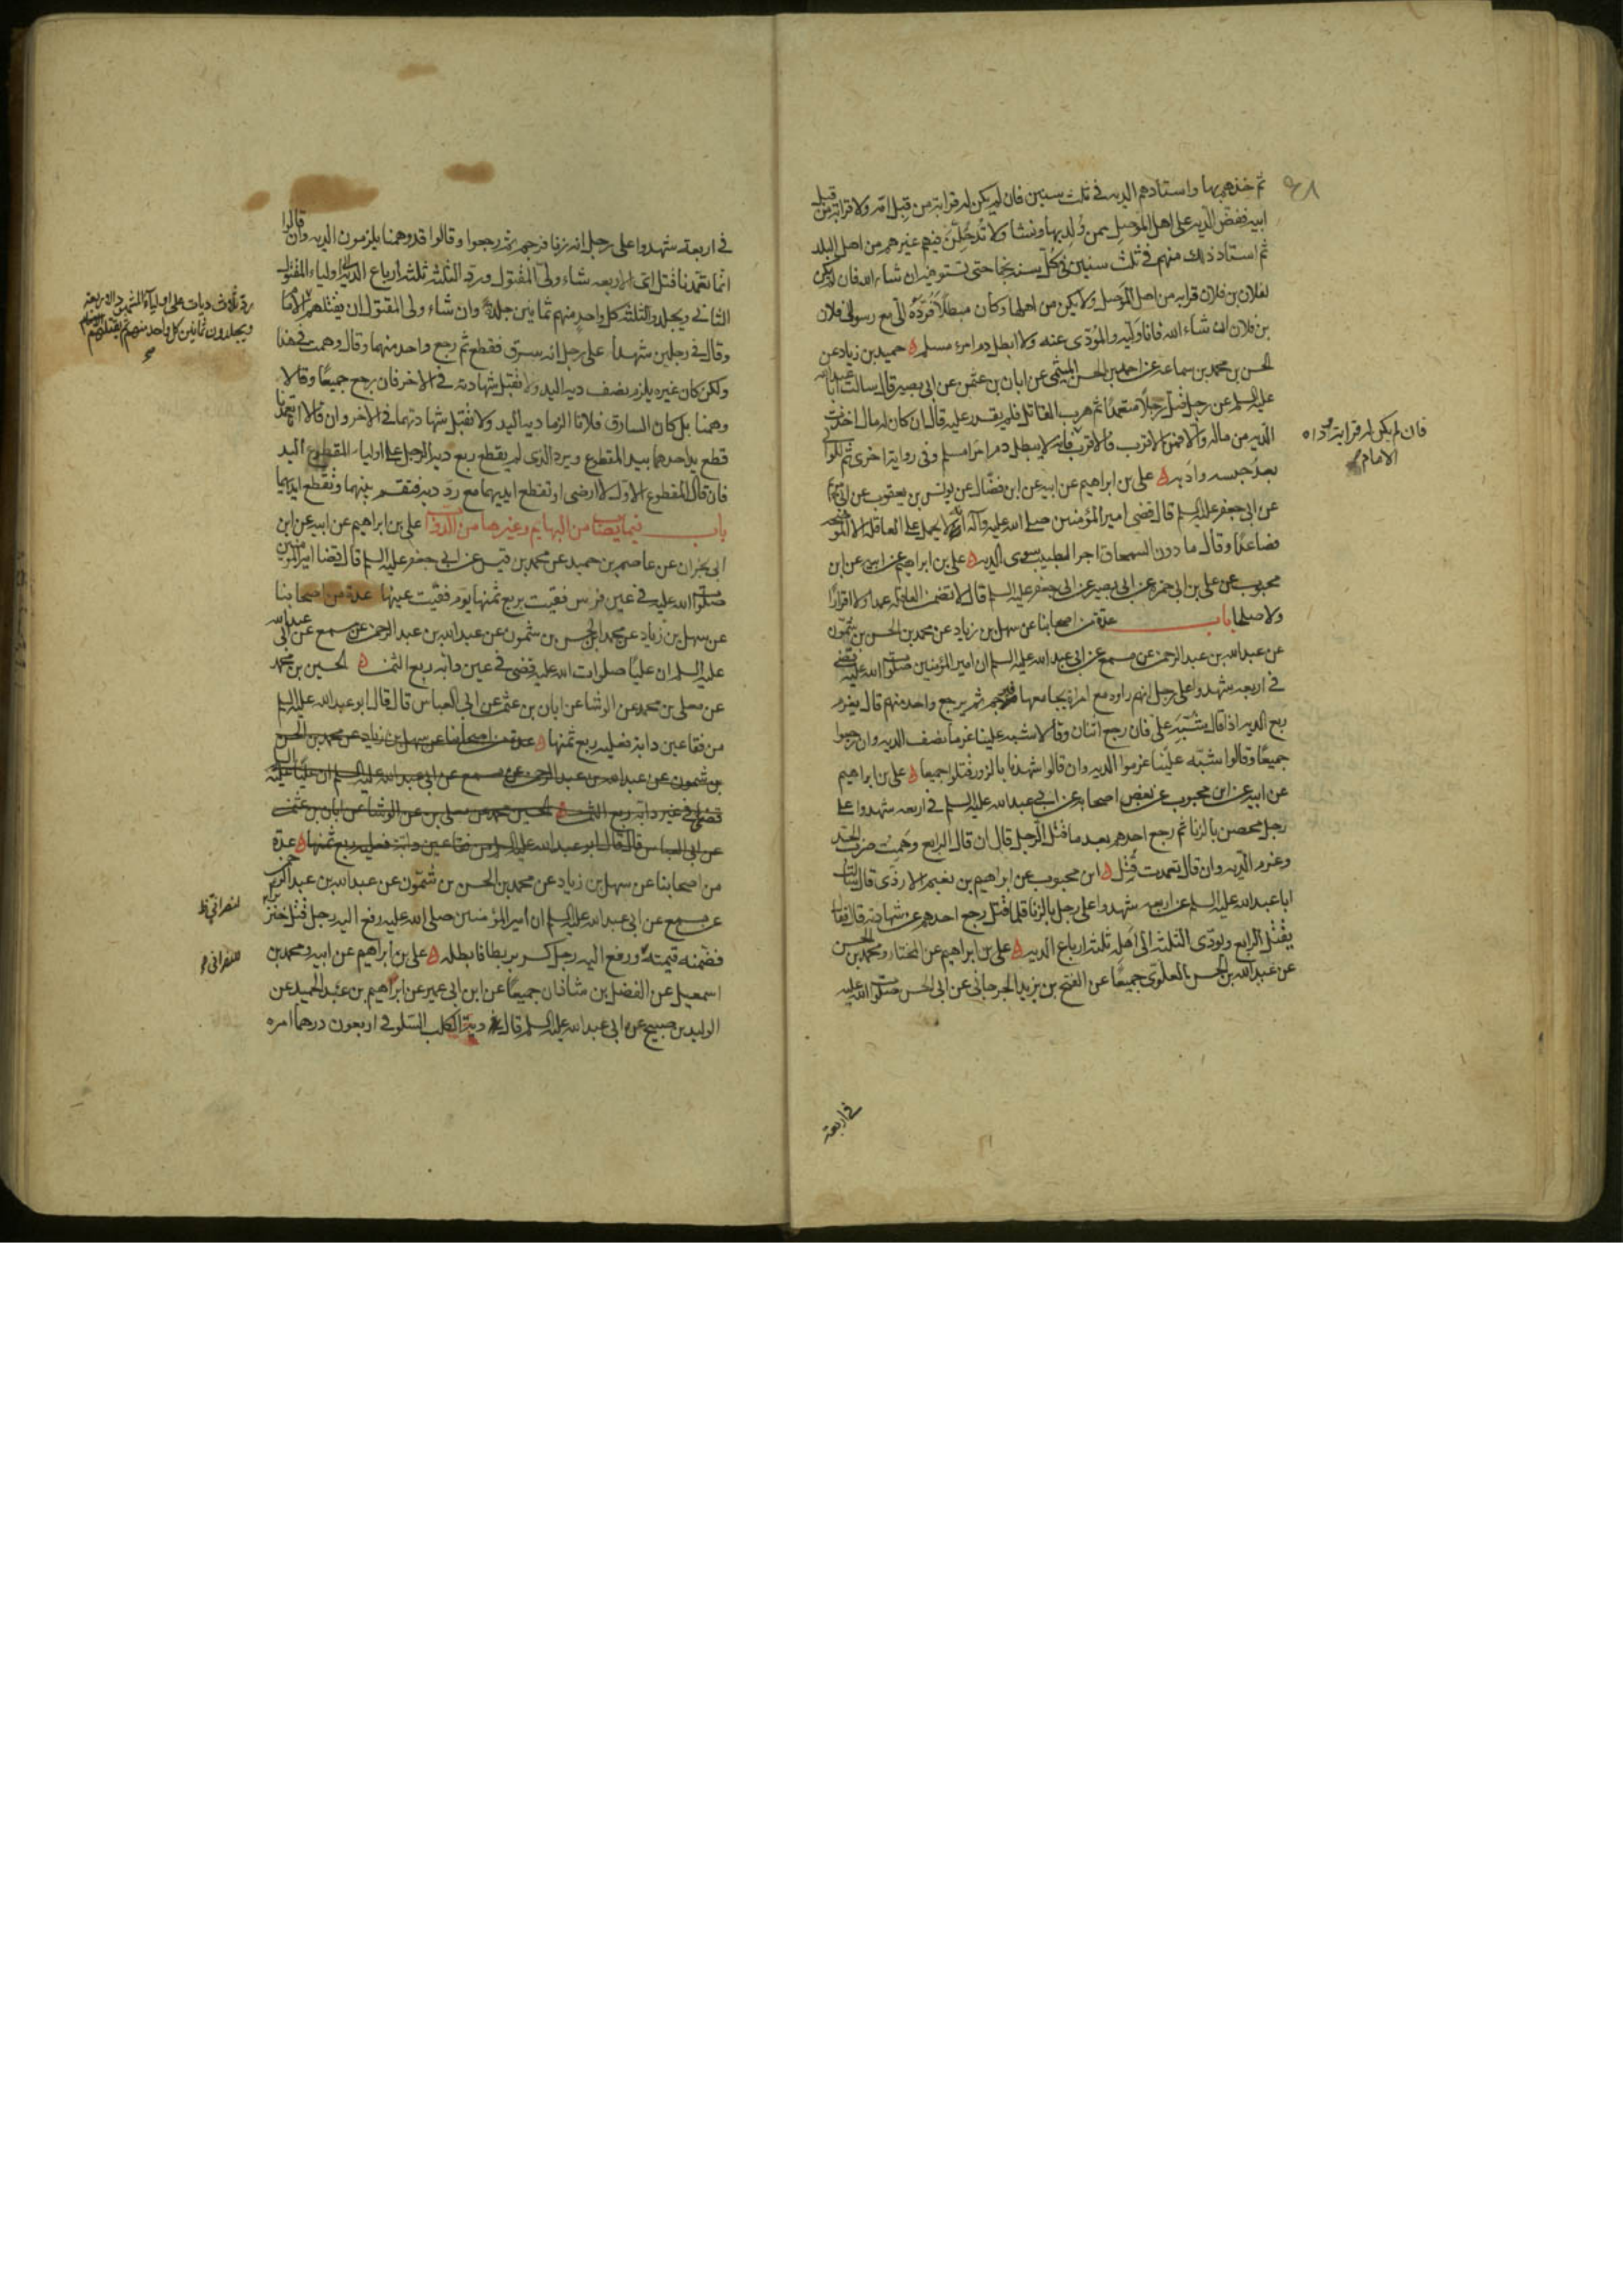 ثم خذهم بها واستأدهم الديه في ثلث سنين فان لم يكن له قرابة من قبل امه ولا قرابة من قبل
ابيه ففضّ الديه على اهل الموصل ممن وُلد بها ونشأ ولا تُدخلنّ فيهم غيرهم من اهل البلد
ثم استأد ذلك منهم في ثلث سنين في كل سنه نجما حتى تستوفيه ان شاء الله فان لم يكن
لفلان بن فلان قرابه من اهل الموصل ولا يكون من اهلها وكان مبطلًا فردّه الىّ مع رسولى فلان
بن فلان ان شاء الله فانا وليه والمؤدّى عنه ولا ابطل دم امرء مسلم ه حميد بن زياد عن
الحسن بن محمد بن سماعه عن احمد بن الحسن الميثمى عن ابان بن عثمن عن ابى بصير قال سالت ابا عبد الله
عليه السلم عن رجل قتل رجلًا متعمدًا ثم هرب القاتل فلم يقدر عليه قال ان كان له مال اخذت
الدّيه من ماله والا فمن الاقرب فالاقرب فانه لا يبطل دم امرئ مسلم وفى رواية اخرى ثم للوالى
بعدُ حبسه وادبه ه على بن ابراهيم عن ابيه عن ابن فضّال عن يونس بن يعقوب عن ابى مريم
عن ابى جعفر عليه السلم قال قضى امير المؤمنين صلى الله عليه وآله ان لا يحمل على العاقله الا الموضحه
فصاعدًا وقال ما دون السمحاق اجر الطبيب سوى الديه ه على بن ابراهيم عن ابيه عن ابن
محبوب عن على بن ابى حمزه عن ابى بصير عن ابى جعفر عليه السلم قال لا تضمن العاقله عمدا ولا اقرارًا
ولا صلحا باب عدة من اصحابنا عن سهل بن زياد عن محمد بن الحسن بن شمّون
عن عبد الله بن عبد الرحمن عن مسمع عن ابى عبد الله عليه السلم ان امير المؤمنين صلوات الله عليه قضى
في اربعه شهدوا على رجل انهم راوه مع امراة يجامعها فيرجم ثم يرجع واحد منهم قال يغرم
ربع الديه اذا قال شُبّه علىّ فان رجع اثنان وقالا شبه علينا غرما نصف الديه وان رجعوا
جميعًا وقالوا شبّه علينا غرموا الديه وان قالوا شهدنا بالزور قتلوا جميعا ه على بن ابراهيم
عن ابيه عن ابن محبوب عن بعض اصحابه عن ابى عبد الله عليه السلم في اربعه شهدوا على
رجل محصن بالزنا ثم رجع احدهم بعد ما قُتل الرجل قال ان قال الرابع وهمت ضرب الحدّ
وغرم الدّيه وان قال تعمدت قُتِل ه ابن محبوب عن ابراهيم بن نعيم الازدى قال سالت
ابا عبد الله عليه السلم عن اربعه شهدوا على رجل بالزنا فلما قُتل رجع احدهم عن شهادته قال فقال
يقتل الرابع ويودّى الثلثه الى اهله ثلثه ارباع الديه ه على بن ابراهيم عن المختار ومحمد بن الحسن
عن عبد الله بن الحسن العلوّى جميعًا عن الفتح بن يزيد الجرجانى عن ابى الحسن صلوات الله عليه
فان لم يكن له قرابة وداه
الامام
في اربعة
في اربعة شهدوا على رجل انه زنا فرجم ثم رجعوا وقالوا قد وهمنا يلزمون الديه وان قالوا
انما تعمّدنا قتل اىّ الاربعه شاء ولىّ المقتول وردّ الثلثه ثلثه ارباع الديه الى اولياء المقتول
الثانى ويجلد الثلثه كل واحد منهم ثمانين جلدة وان شاء ولى المقتول ان يقتلهم
وقال في رجلين شهدا على رجل انه سرق فقطع ثم رجع واحد منهما وقال وهمت في هذا
ولكن كان غيره يلزم نصف ديه اليد ولا تقبل شهادته في الاخر فان رجع جميعًا وقالا
وهمنا بل كان السارق فلانا الزما ديه اليد ولا تقبل شهادتهما في الاخر وان قالا انا تعمّدنا
قطع يد احدهما بيد المقطوع ويرد الذى لم يقطع ربع ديه الرجل على اولياء المقطوع اليد
فان قال المقطوع الاول لا ارضى او تقطع ايديهما معا ردّ ديه فتقسم بينهما وتقطع ايديهما
باب فيما يصاب من البهايم وغيرها من الدوابّ على بن ابراهيم عن ابيه عن ابن
ابى نجران عن عاصم بن حميد عن محمد بن قيس عن ابى جعفر عليه السلم قال قضا امير المؤمنين
صلوات الله عليه في عين فرس فقيت بربع ثمنها يوم فقيت عينها عدة من اصحابنا
عن سهل بن زياد عن محمد بن الحسن بن شمّون عن عبد الله بن عبد الرحمن عن مسمع عن ابى عبد الله
عليه السلم ان عليًا صلوات الله عليه قضى في عين دابّه ربع الثمن ه الحسين بن محمد
عن معلى بن محمد عن الوشا عن ابان بن عثمن عن ابى العباس قال قال ابو عبد الله عليه السلم
من فقا عين دابة فعليه ربع ثمنها ه عدة من اصحابنا عن سهل بن زياد عن محمد بن الحسن
بن شمون عن عبد الله بن عبد الرحمن عن مسمع عن ابى عبد الله عليه السلم ان عليًا عليه السلم
قضى في عين دابة ربع الثمن ه الحسين بن محمد عن معلى بن عن الوشا عن ابان بن عثمن
عن ابى العباس قال قال ابو عبد الله عليه السلم من فقا عين دابة فعليه ربع ثمنها ه عدة
من اصحابنا عن سهل بن زياد عن محمد بن الحسن بن شمّون عن عبد الله بن عبد الرحمن
عن مسمع عن ابى عبد الله عليه السلم ان امير المؤمنين صلى الله عليه رفع اليه رجل قتل خنزيرا
فضمنه قيمته ورفع اليه رجل كسر بربطا فابطله ه على بن ابراهيم عن ابيه ومحمد بن
اسمعيل عن الفضل بن شاذان جميعًا عن ابن ابى عمير عن ابراهيم بن عبد الحميد عن
الوليد بن صبيح عن ابى عبد الله عليه السلم قال دية الكلب السلوقى اربعون درهما امره
ردّ ثلاث ديات على اولياء الشهود الاربعة
ويجلدون ثمانين كل واحد منهم ثم يقتلهم الامام
لنصرانى ظ